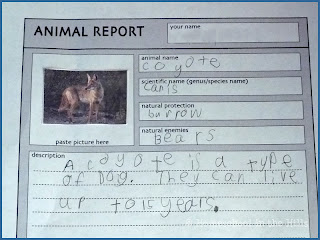 ANIMAL REPORT
your name
animal name
coyote
scientific name (genus/species name)
canis
natural protection
burrow
natural enemies
Bears
paste picture here
description
A cayote is a type
of Dog. They can live
up to 15 years.